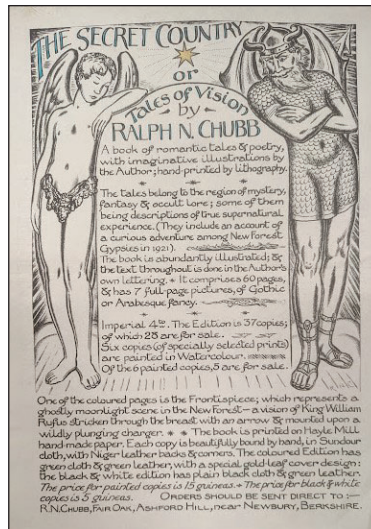 THE SECRET COUNTRY
or
Tales of Vision
by
RALPH N. CHUBB
A book of romantic tales & poetry,
with imaginative illustrations by
the Author; hand-printed by lithography.
The tales belong to the region of mystery,
fantasy & occult lore; some of them
being descriptions of true supernatural
experience. (They include an account of
a curious adventure among New Forest
Gypsies in 1921).
The book is abundantly illustrated; &
the text throughout is done in the Author's
own lettering. * It comprises 60 pages,
& has 7 full-page pictures, of Gothic
or Arabesque fancy.
Imperial 4to. The Edition is 37 copies;
of which 28 are for sale.
Six copies (of specially selected prints)
are painted in Watercolour.
Of the 6 painted copies, 5 are for sale.
One of the coloured pages is the Frontispiece; which represents a
ghostly moonlight scene in the New Forest — a vision of King William
Rufus stricken through the breast with an arrow & mounted upon a
wildly plunging charger. * * The book is printed on Hayle Mill
hand-made paper. Each copy is beautifully bound by hand, in Sundour
cloth, with Niger-leather backs & corners. The coloured Edition has
green cloth & green leather, with a special gold-leaf cover design:
the black & white edition has plain black cloth & green leather.
The price for painted copies is 15 guineas. * The price for black & white
copies is 5 guineas. ORDERS SHOULD BE SENT DIRECT TO :—
R.N.CHUBB, FAIR OAK, ASHFORD HILL, near NEWBURY, BERKSHIRE.